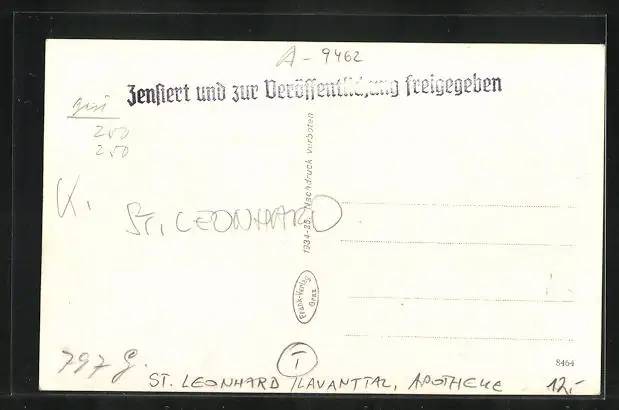 A-9462
Zensiert und zur Veröffentlichung freigegeben
250
250
K.
ST. LEONHARD
1934-35. Nachdruck verboten
Frank-Verlag
Graz
797 G.
T
8464
ST. LEONHARD /LAVANTTAL, APOTHEKE
12,-